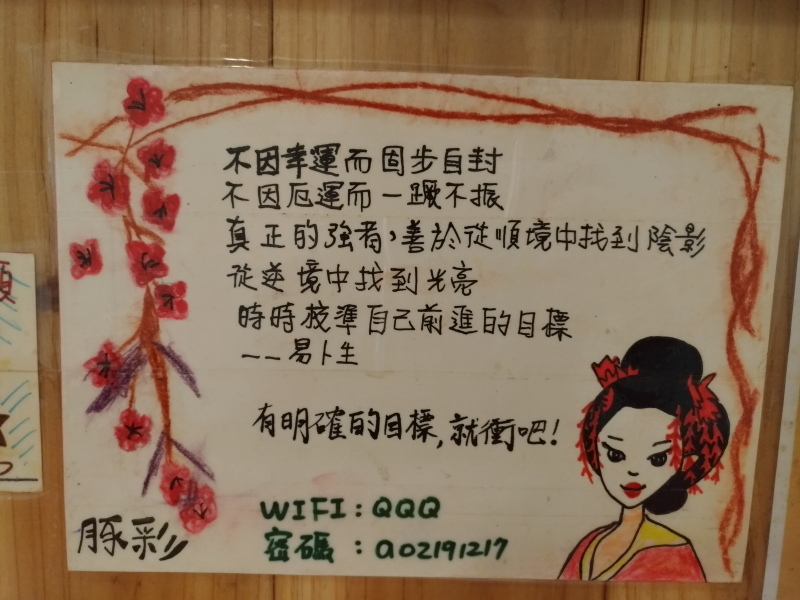 不因幸運而固步自封
不因厄運而一蹶不振
真正的強者，善於從順境中找到陰影
從逆境中找到光亮
時時校準自己前進的目標
——易卜生
有明確的目標,就衝吧!
WIFI:QQQ
密碼:a02191217
豚彩